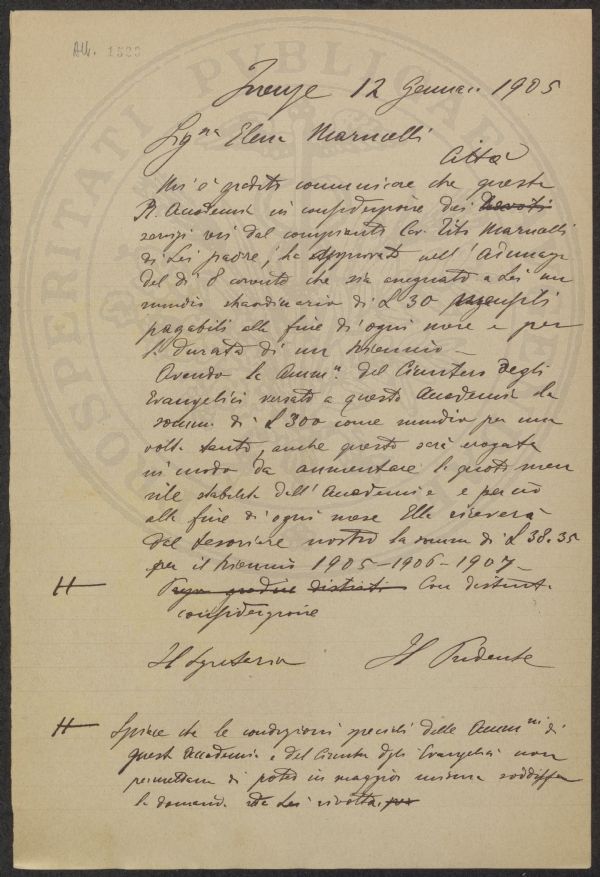 Alleg. 1520
Firenze 12 Gennaio 1905
Sig.na Elena Marucelli
Città
Mi è gradito comunicare che questa
R. Accademia in considerazione dei devoti
servizi resi dal compianto Cav. Tito Marucelli
di Lei padre, ha approvato nell'Adunanza
del dì 8 corrente che sia assegnato a Lei un
sussidio straordinario di £ 30 mensili
pagabili alla fine di ogni mese e per
la durata di un triennio –
Avendo la Amm.e del Cimitero degli
Evangelici versato a questa Accademia la
somma di £ 300 come sussidio per una
volta tanto, anche questa sarà erogata
in modo da aumentare la quota men
sile stabilita dall'Accademia e perciò
alla fine di ogni mese Ella riceverà
dal tesoriere nostro la somma di £ 38.35
per il triennio 1905–1906–1907 –
Prego gradire distinti Con distinta
considerazione
Il Segretario Il Presidente
Spiace che le condizioni speciali delle Amm.ni di
quest'Accademia e del Cimitero degli Evangelici non
permettano di poter in maggior misura soddisfare
la domanda da Lei rivolta. per